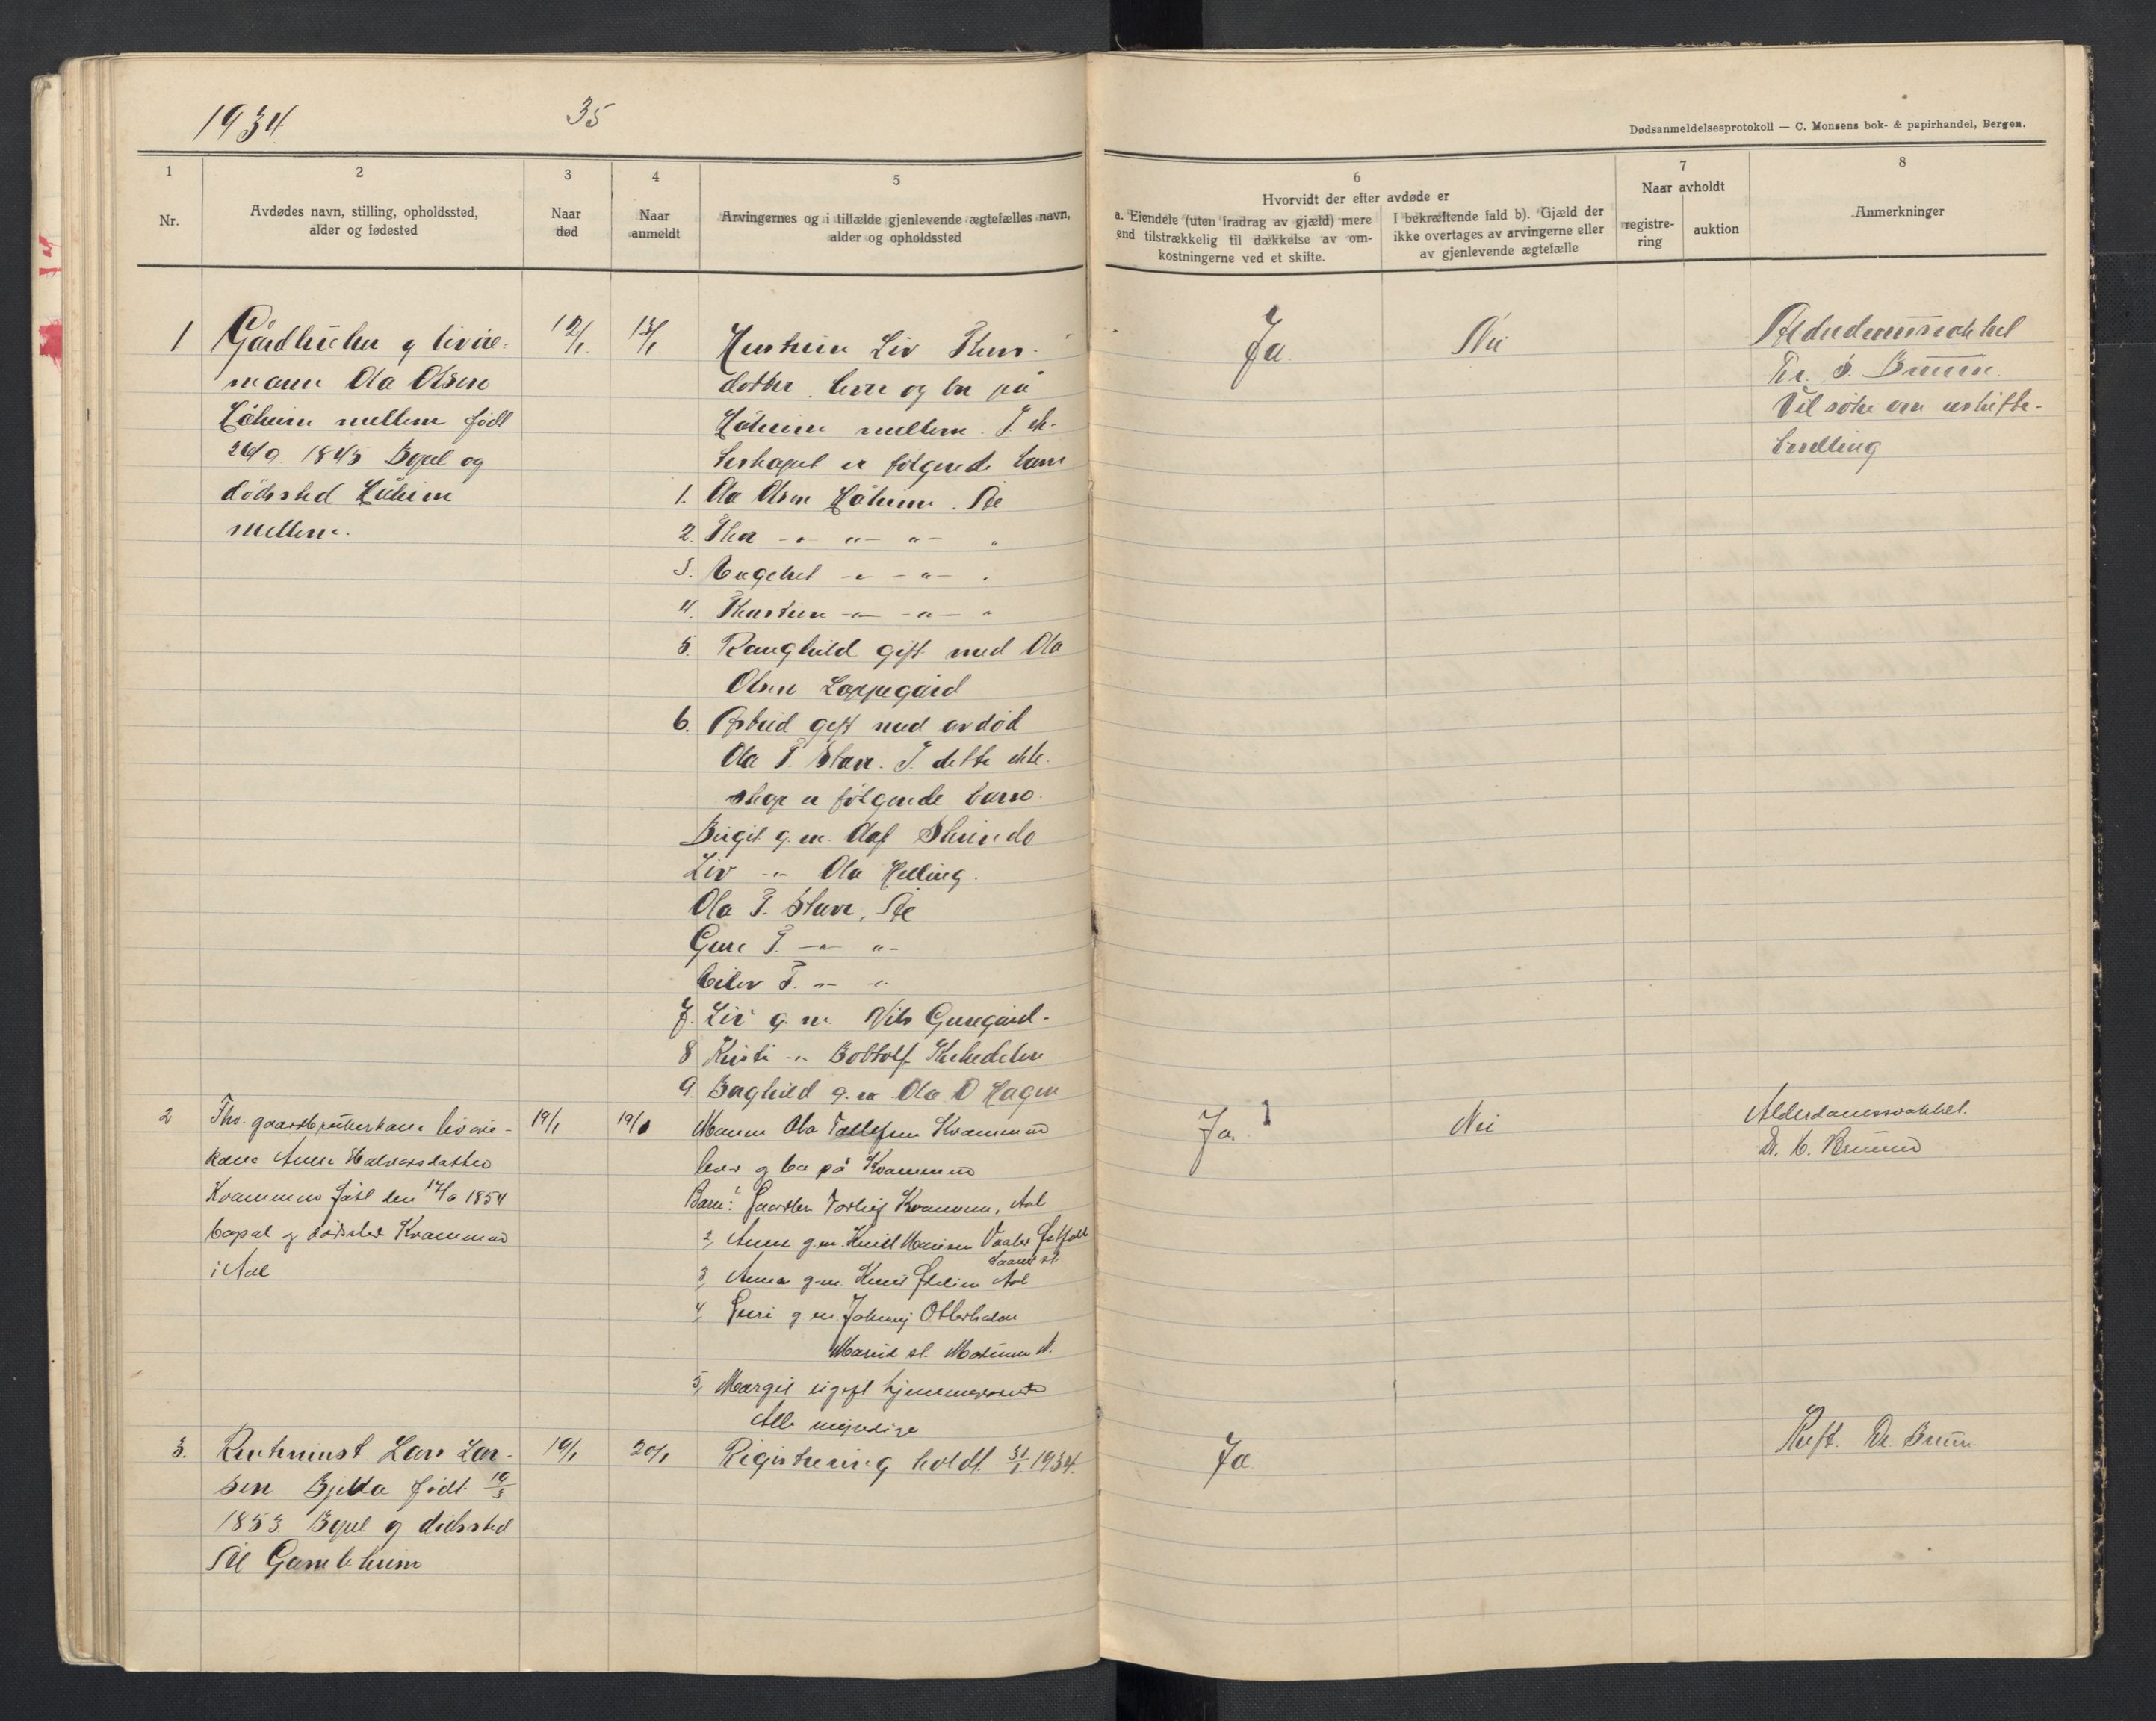 1934.
35
Dødsanmeldelsesprotokoll — C. Monsens bok- & papirhandel, Bergen.
1
2
3
4
5
6
7
8
Nr.
Avdødes navn, stilling, opholdssted,
alder og fødested
Naar
død
Naar
anmeldt
Arvingernes og i tilfælde gjenlevende ægtefælles navn,
alder og opholdssted
Hvorvidt der efter avdøde er
a. Eiendele (uten fradrag av gjæld) mere
end tilstrækkelig til dækkelse av om-
kostningerne ved et skifte.
I bekræftende fald b). Gjæld der
ikke overtages av arvingerne eller
av gjenlevende ægtefælle
Naar avholdt
registre-
ring
auktion
Anmerkninger
1
Gårdbruker og livøre-
mann Ola Olsen
Håheim mellem født
26/9 1845 Bopel og
dødssted Håheim
mellem.
12/1
13/1
Hustruen Liv Thors-
dotter lever og bor på
Håheim mellem. I ek-
teskapet er følgende barn
1. Ola Olsen Håheim. Ål
2. Thor -"- "- "- "
3. Engebret -"- -"- "
4. Thorstein -"- -"- "
5. Ranghild gift med Ola
Olsen Loppegård
6. Astrid gift med avdød
Ola T. Stave. I dette ekte-
skap er følgende barn.
Birgit g.m. Olaf Skrindo
Liv -"- Ola Helling.
Ola T. Stave, Ål
Guro T. -"- "-
Eilev T. -"- "-
7. Liv g.m. Nils Guregård.
8 Kristi -"- Bottolf
9. Borghild g.m. Ola O Hagen
Ja.
Nei
Alderdomssvakhet
Dr. E. Bruun.
Vil søke om uskifte-
bevilling
2
Fhv. gaardbrukerkone livøre-
kone Anne Halvorsdatter
Kvammen født den 17/9 1854
bopæl og dødssted Kvammen
i Aal
19/1
19/1
Mann Ola Tollefsen Kvammen
lever og bor på Kvammen
Barn: Torleif Kvammen, Aal
2, Anne g.m. Vaaler Østfold
3, Anna g.m. Knut Aal
4, Guri g.m.
5, Margit ugift hjemmeværende
Alle myndige
Ja.
Nei
Alderdomssvakhet.
Dr. E. Bruun
3.
Lars Lar-
sen Bjella født 10/3
1853. Bopel og dødssted
Ål Gamleheim
19/1
20/1
Registrering holdt 31/1 1934.
Ja
Kreft. Dr. Bruun.